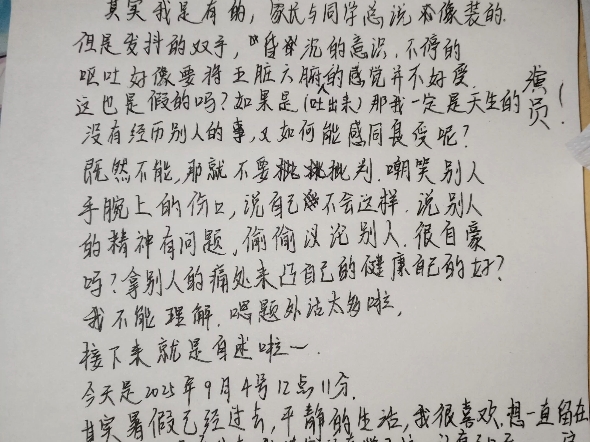 其实我是有的，家长与同学总说我像装的.
但是发抖的双手，昏沉的意识，不停的
呕吐好像要将五脏六腑的感觉并不好受
这也是假的吗？如果是(吐出来)那我一定是天生的演员！
没有经历别人的事，又如何能感同身受呢？
既然不能，那就不要批判.嘲笑别人
手腕上的伤口，说自己不会这样.说别人
的精神有问题，偷偷议论别人.很自豪
吗？拿别人的痛处来凸自己的健康自己的好？
我不能理解.嗯题外话太多啦，
接下来就是自述啦～.
今天是2025年9月4号12点11分.
其实暑假已经过去，平静的生活，我很喜欢.想一直留在